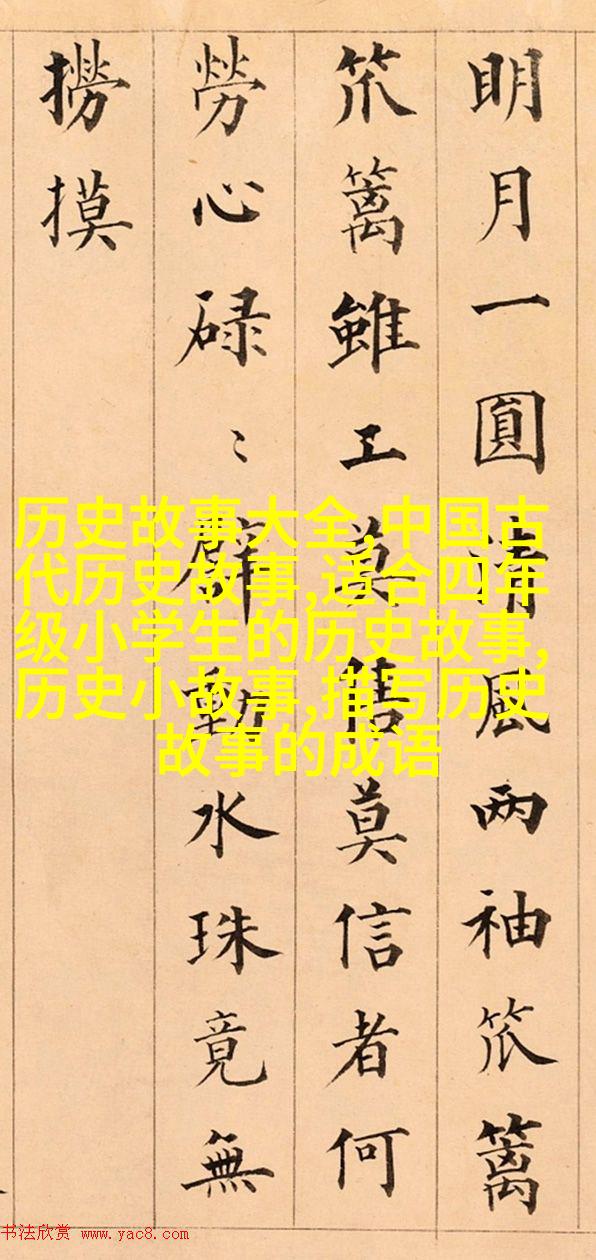 明月一圓清風两袖笊篱
笊篱雖工莫售莫信者何
勞心碌〻動水珠竟無
撈摸
历史故事大全,中国古
代历史故事,适合四年
级小学生的历史故事,
历史小故事,描写历史
故事的成语
书法欣赏 www.yac8.com